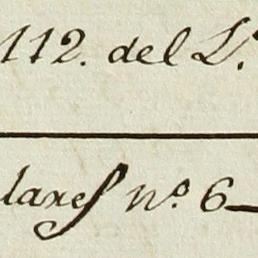 112. del L.
lares nº 6